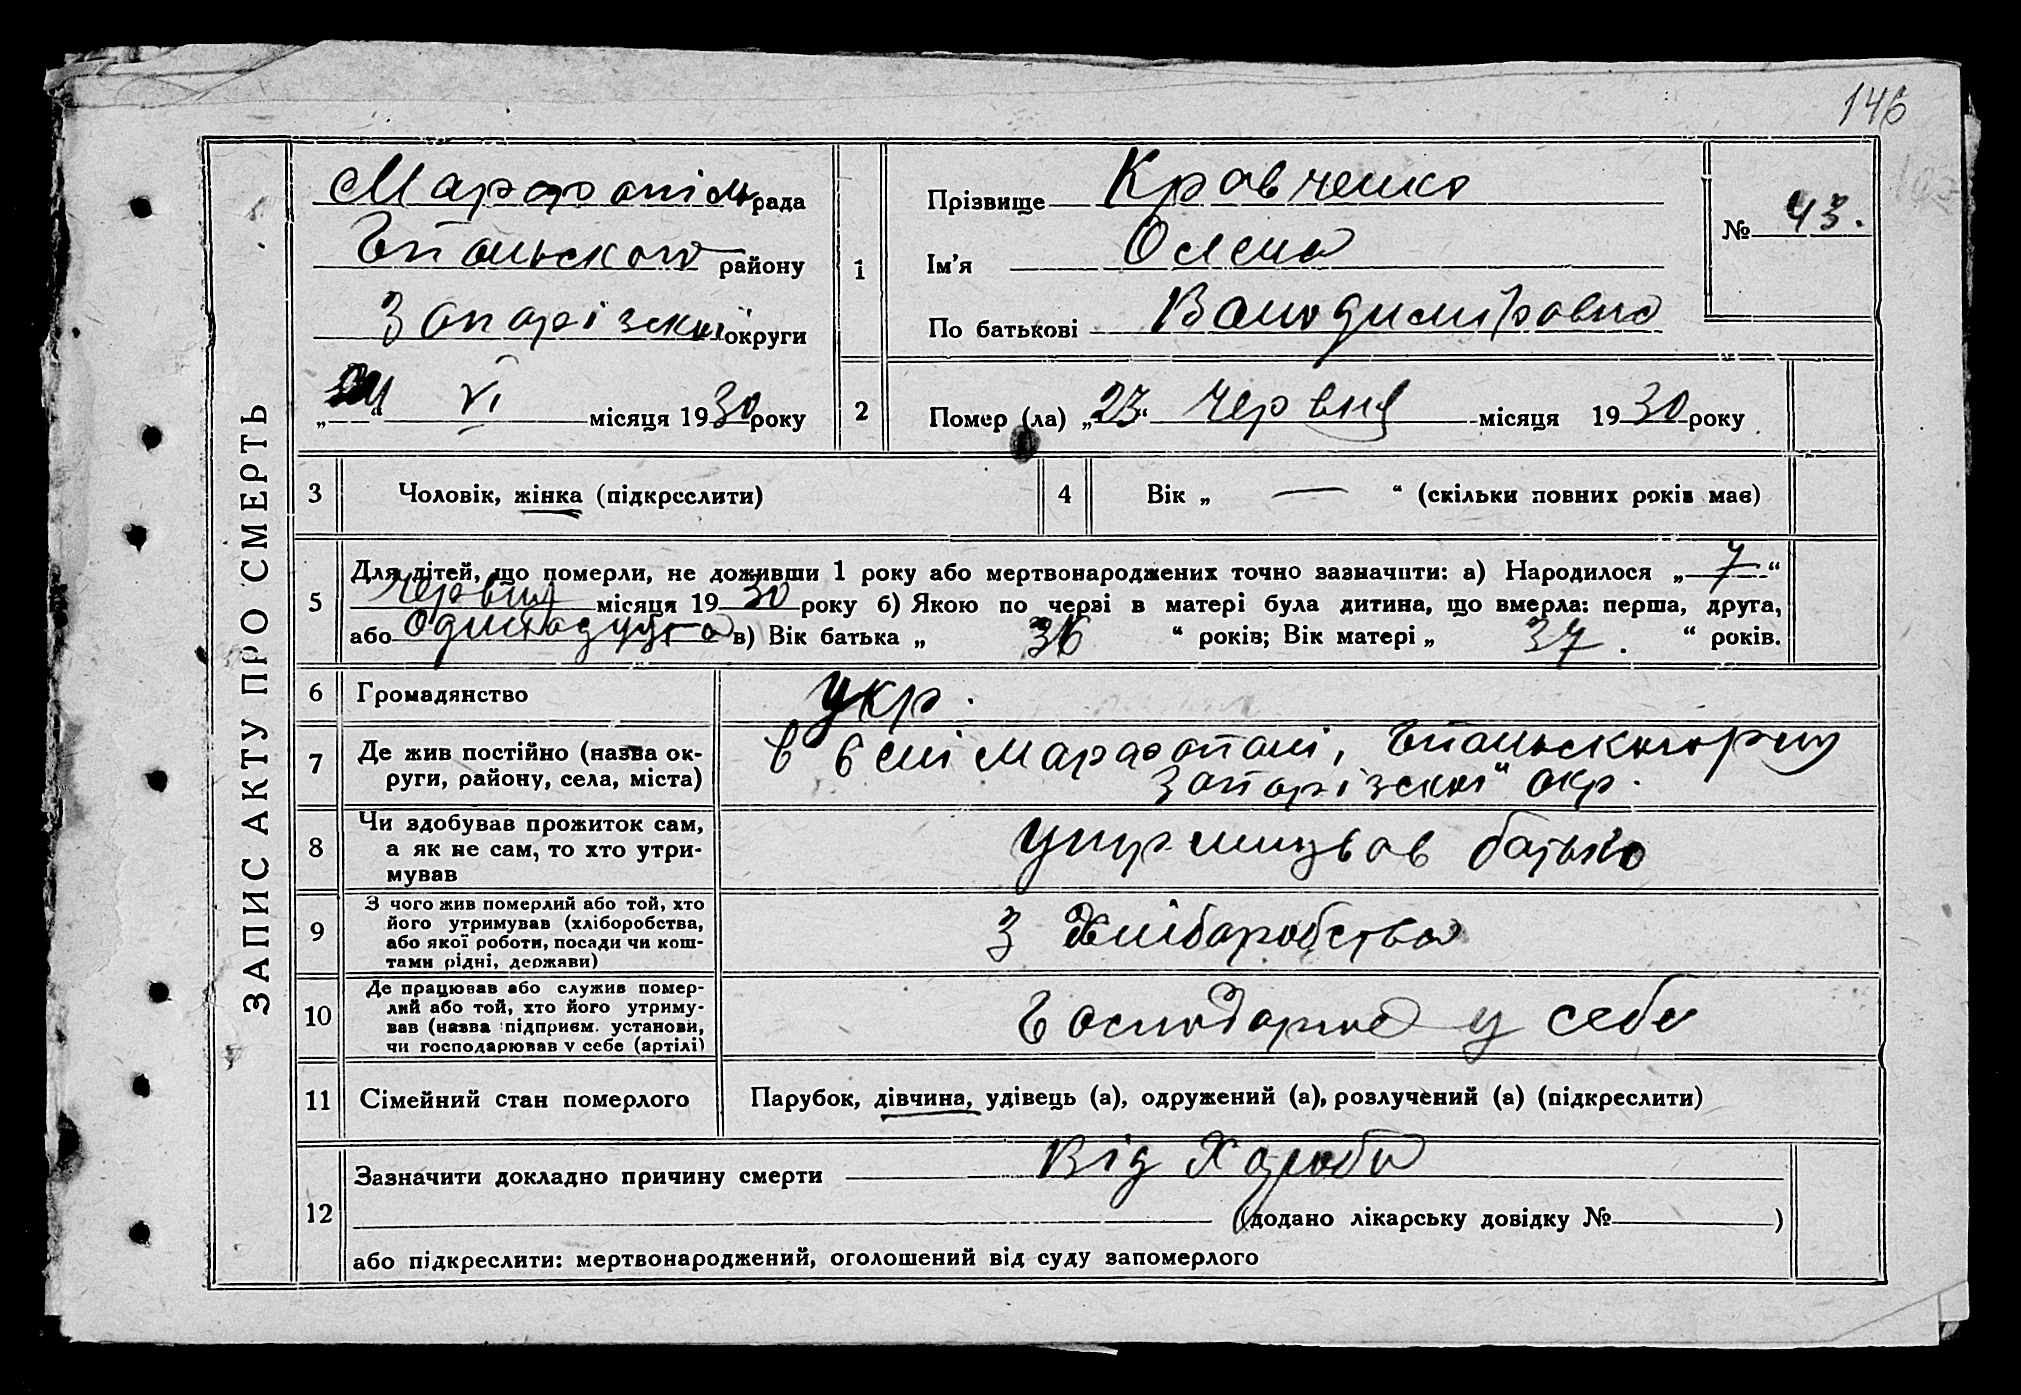 146
ЗАПИС АКТУ ПРО СМЕРТЬ
Марфопіль рада
району
Запарізскої округи
„24“ VI місяця 1930 року
1 Прізвище Кравченко
Імʼя Олена
По батькові Володимировна
№ 43.
2 Помер (ла) „23“ Червня місяця 1930 року
3 Чоловік, жінка (підкреслити)
4 Вік „ — “ (скільки повних років мав)
5 Для дітей, що померли, не доживши 1 року або мертвонароджених точно зазначити: а) Народилося „7“
Червня місяця 1930 року б) Якою по черві в матері була дитина, що вмерла: перша, друга,
або в) Вік батька „36“ років; Вік матері „37.“ років.
6 Громадянство укр.
7 Де жив постійно (назва ок-
руги, району, села, міста)
в селі Марфополі,
Запарізскої окр.
8 Чи здобував прожиток сам,
а як не сам, то хто утри-
мував
батько
9 З чого жив померлий або той, хто
його утримував (хліборобства,
або якої роботи, посади чи кош-
тами рідні, держави)
З Хліборобства
10 Де працював або служив помер-
лий або той, хто його утриму-
вав (назва підприєм. установи,
чи господарював у себе (артілі)
у себе
11 Сімейний стан померлого Парубок, дівчина, удівець (а), одружений (а), розлучений (а) (підкреслити)
12 Зазначити докладно причину смерти Від Хароби
(додано лікарську довідку № )
або підкреслити: мертвонароджений, оголошений від суду запомерлого